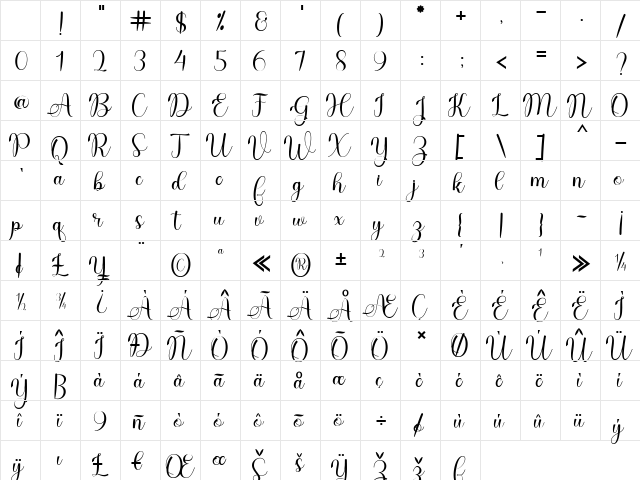 ! " # $ % & ' ( ) * + , - . /
0 1 2 3 4 5 6 7 8 9 : ; < = > ?
@ A B C D E F G H I J K L M N O
P Q R S T U V W X Y Z [ \ ] ^ _
` a b c d e f g h i j k l m n o
p q r s t u v w x y z { | } ~ ¡
¢ £ ¥ ¨ © ª « ® ± ² ³ ´ · ¹ » ¼
½ ¾ ¿ À Á Â Ã Ä Å Æ Ç È É Ê Ë Ì
Í Î Ï Ð Ñ Ò Ó Ô Õ Ö × Ø Ù Ú Û Ü
Ý ß à á â ã ä å æ ç è é ê ë ì í
î ï ñ ò ó ô õ ö ÷ ø ù ú û ü ý
ÿ ı Ł ł Œ œ Š š Ÿ Ž ž